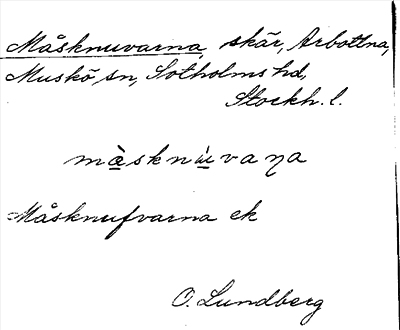 Måsknuvarna, skär, Arbottna,
Muskö sn, Sotholms hd,
Stockh. l.
må̀sknùvaṇa
Måsknufvarna ek
O. Lundberg